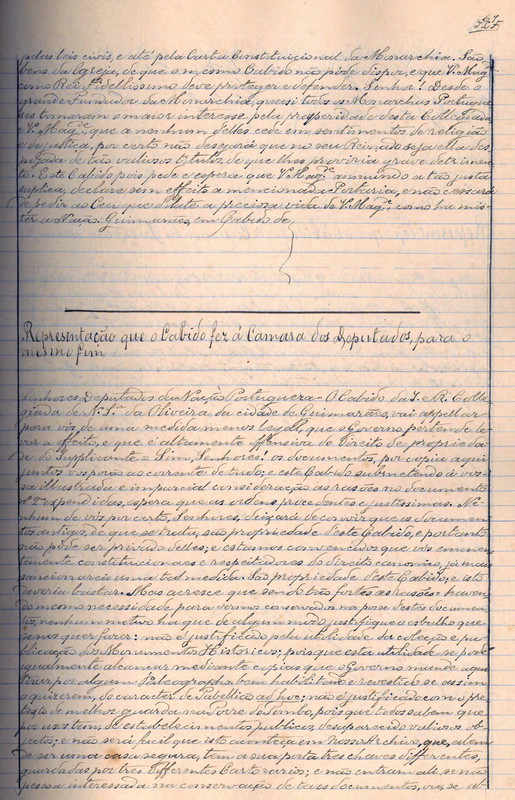 pelas leis civis, e até pela Carta Constitucional da Monarchia. São
bens da Igreja, de que o mesmo Cabido não póde dispor, e que V. Mag.e
como Rei Fidelissimo deve proteger e defender. Senhor! Desde o
grande fundador da Monarchia, quasi todos os Monarchas Portugue-
ses tomaram o maior interesse pela prosperidade desta Collegiada
e V. Mag.e, que a nenhum delles cede em sentimentos de religião
e de justiça, por certo não desejará que no seu Reinado seja ella des-
pojada de tão valiosos titulos, de que lhes proviria grave detrimen-
to. Este Cabido pois pede e espera que V. Mag.e annuindo a tão justa
suplica, declare sem effeito a mencionada Portaria, e não cessará
de pedir ao Ceu que dilate a preciosa vida de V. Mag.e como ha mis-
ter a Nação. Guimarães, em Cabido de
Representação que o Cabido fez á Camara dos Deputados, para o
mesmo fim
Senhores Deputados da Nação Portugueza - O Cabido da I. e R. Colle-
giada de N. S.ra da Oliveira da cidade de Guimarães, vai appellar
para vós, de uma medida menos legal, que o Governo pertende le-
var a effeito, e que é altamente offensiva do direito de proprieda-
de do Supplicante = Sim, Senhores! os documentos, por copia aqui
juntos vos porão ao corrente de tudo; e este Cabido submetendo á vos-
sa illustrada e imparcial consideração as rasões no documento
nº 2 expendidas, espera que as ordens procedentes e justissimas. Ne-
nhum de vós por certo, Senhores, deixará de convir que os documen-
tos antigos, de que se trata, são propriedade deste Cabido, e portanto
não póde ser privado delles; e estamos convencidos que vós eminen-
temente constitucionaes e respeitadores do direito canonico, já mais
sanccionareis uma tal medida. São propriedade deste Cabido, e isto
deveria bastar. Mas acresce que sendo tão fortes as rasões, haven-
do mesmo necessidade para sermos conservados na posse destes documen-
tos, nenhum motivo ha que de algum modo justifique o esbulho que
se nos quer fazer: não é justificado pela utilidade da colecção e pu-
blicação dos Monumentos Historicos; pois que esta utilidade se póde
igualmente alcançar mediante copias que o Governo mande aqui
tirar por algum Paleographo bem habilitado e revestido se assim
o quizerem, do caracter de Tabellião ad hoc: não é justificado com o pre-
texto de melhor guarda na Torre do Tombo, pois que todos sabem que
por vezes tem dos estabelecimentos publicos, desaparecido valiosos ob-
jectos; e não será facil que isto aconteça em nosso Archivo, que, alem
de ser uma casa segura, tem a sua porta tres chaves differentes,
guardadas por tres differentes Cartorarios; e não entram ali se não
pessoa interessada na conservação de taes documentos, ou, se al-